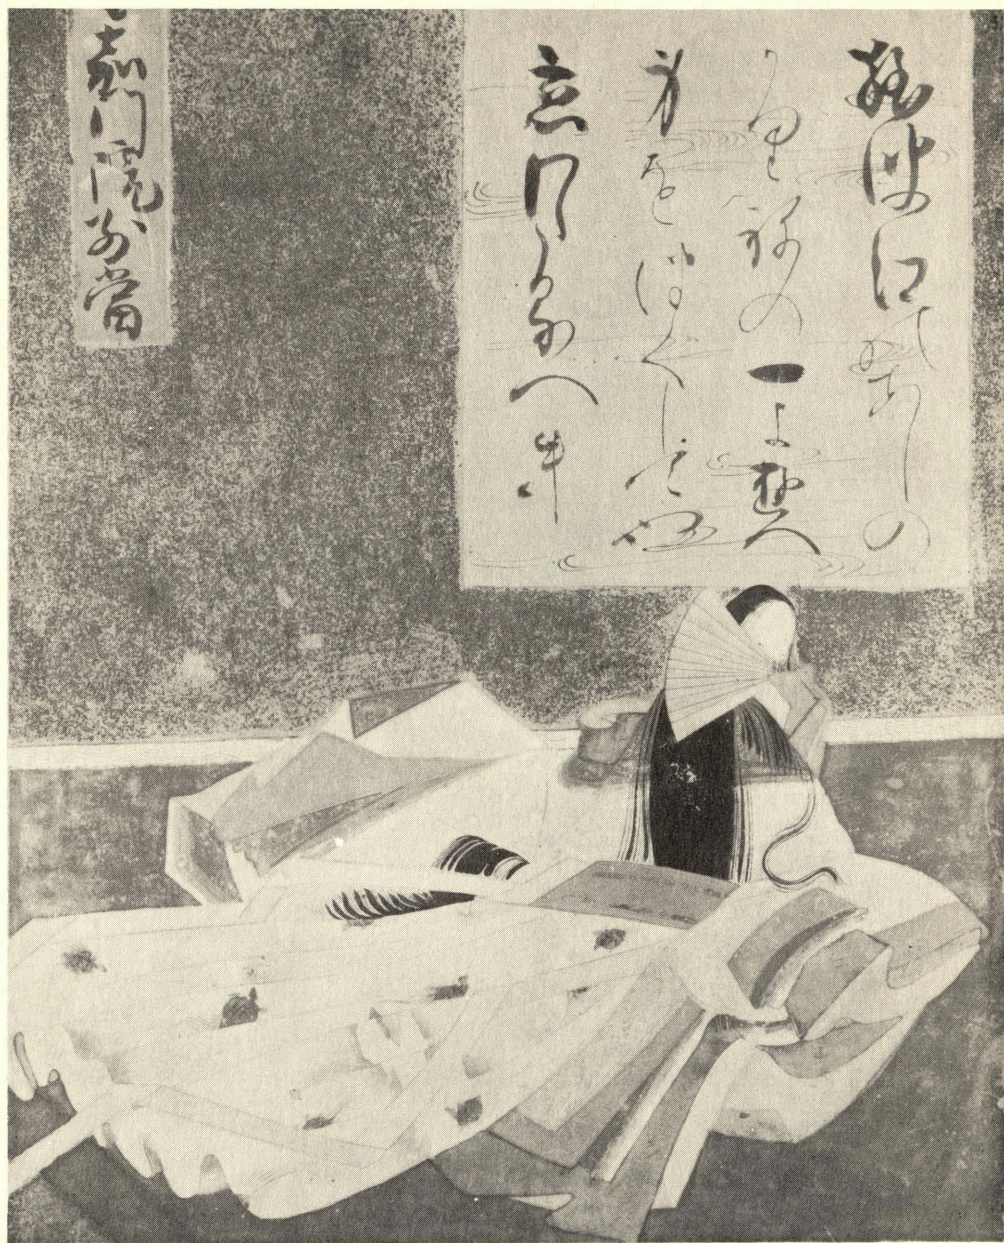 難波江のあしの
かりねの一よ故
身をつくしてや
恋わたるへき
嘉門院別當